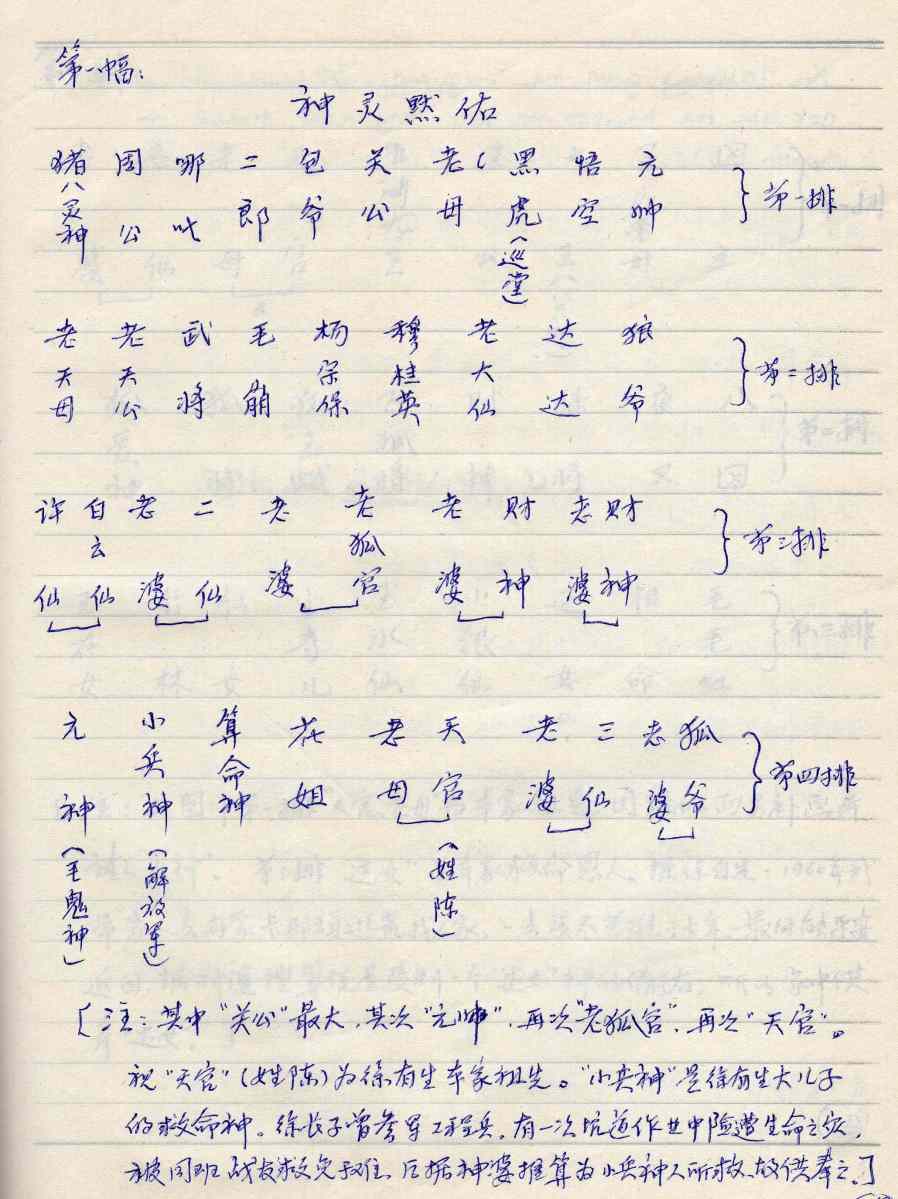 第一幅：
神灵默佑
猪 周 哪 二 包 关 老 黑 悟 元
八灵神 公 吒 郎 爷 公 母 虎 空 帅 } 第一排
（巡堂）
老 老 武 毛 杨 穆 老 达 狼
天 天 宗 桂 大 } 第二排
母 公 将 崩 保 英 仙 达 爷
许 白 老 二 老 老 老 财 老 财
云 狐 } 第三排
仙 仙 婆 仙 婆 官 婆 神 婆 神
元 小 算 在 老 天 老 三 老 狐
兵 命 } 第四排
神 神 神 姐 母 官 婆 仙 婆 爷
（毛鬼神） （解放军） （姓陈）
［注：其中“关公”最大，其次“元帅”，再次“老狐官”，再次“天官”。
祝“天官”（姓陈）为徐有生本家祖先。“小兵神”是徐有生大儿子
的救命神。徐长子曾参军工程兵，有一次坑道作业中险遭生命之灾，
被同班战友救免于难，后据神婆推算为小兵神人所救，故供奉之。］